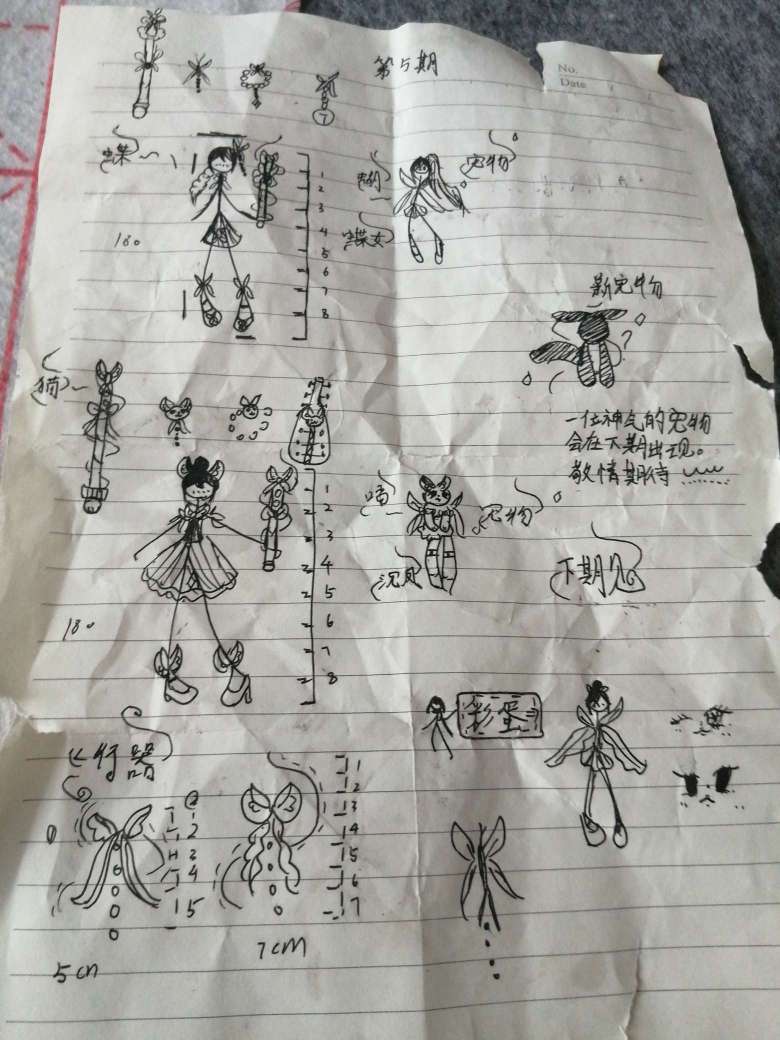 第5期
No.
Date
7
蝶
宠物
蝶女
180
1
2
3
4
5
6
7
8
新宠物
猫
一位神气的宠物
会在下期出现。
敬情期待……
1
2
3
4
5
6
7
8
宠物
下期见
180
彩蛋
飞行器
2
3
4
5
1
2
13
14
15
6
7
5cm
7cm